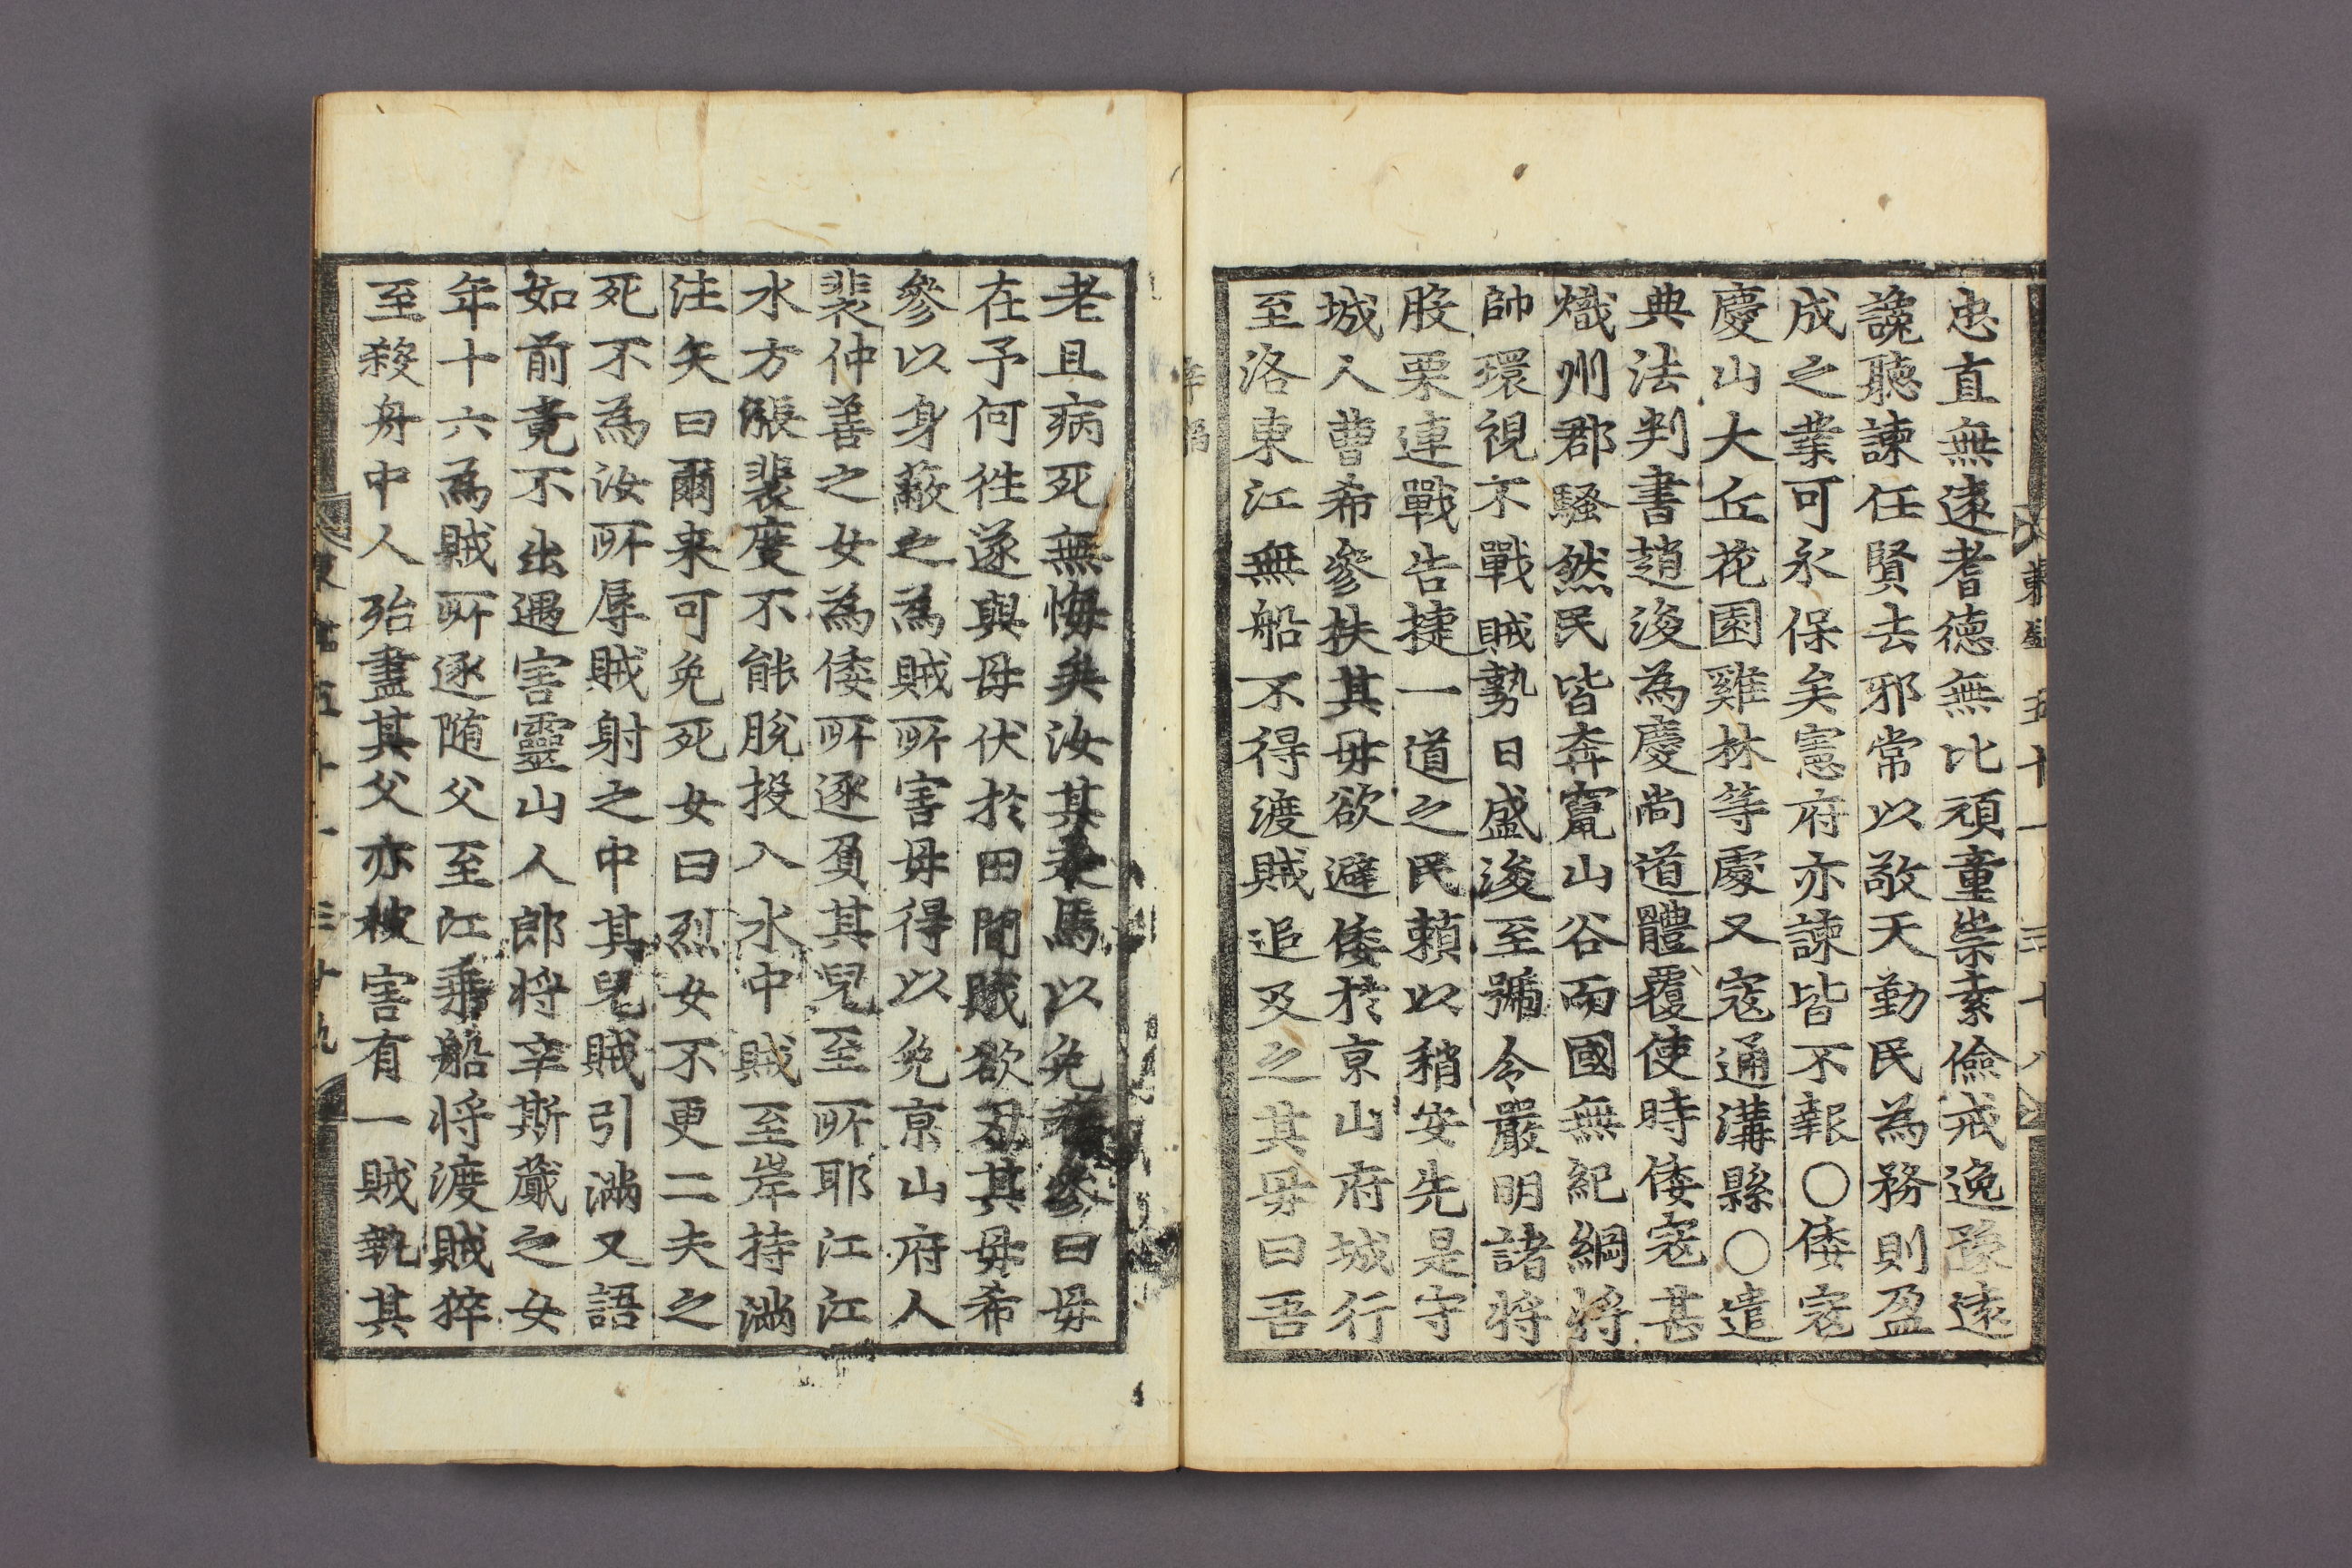 忠直無遠耆德無比頑童崇素儉戒逸豫遠
讒聽諫任賢去邪常以敬天勤民為務則盈
成之業可永保矣憲府亦諫皆不報○倭寇
慶山大丘花園雞林等處又寇通溝縣○遣
典法判書趙浚為慶尚道體覆使時倭寇甚
熾州郡騷然民皆奔竄山谷而國無紀綱將
帥環視不戰賊勢日盛浚至號令嚴明諸將
股栗連戰告捷一道之民賴以稍安先是守
城人曹希參扶其母欲避倭於京山府城行
至洛東江無船不得渡賊追及之其母曰吾
老且病死無悔矣汝其走馬以免希參曰母
在予何徃遂與母伏於田間賊欲刃其母希
參以身蔽之為賊所害母得以免京山府人
裴仲善之女為倭所逐負其兒至所耶江江
水方漲裴度不能脫投入水中賊至岸持滿
注矢曰爾来可免死女曰烈女不更二夫之
死不為汝所辱賊射之中其兒賊引滿又語
如前竟不出遇害靈山人郎將辛斯蕆之女
年十六為賊所逐隨父至江乘船將渡賊猝
至殺舟中人殆盡其父亦被害有一賊執其